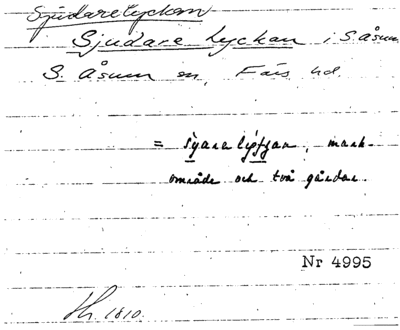 Sjudarelyckan
Sjudare Lyckan i S. Åsum
S. Åsum sn, Färs hd.
= , mark-
område och två gårdar.
Nr 4995
1810.